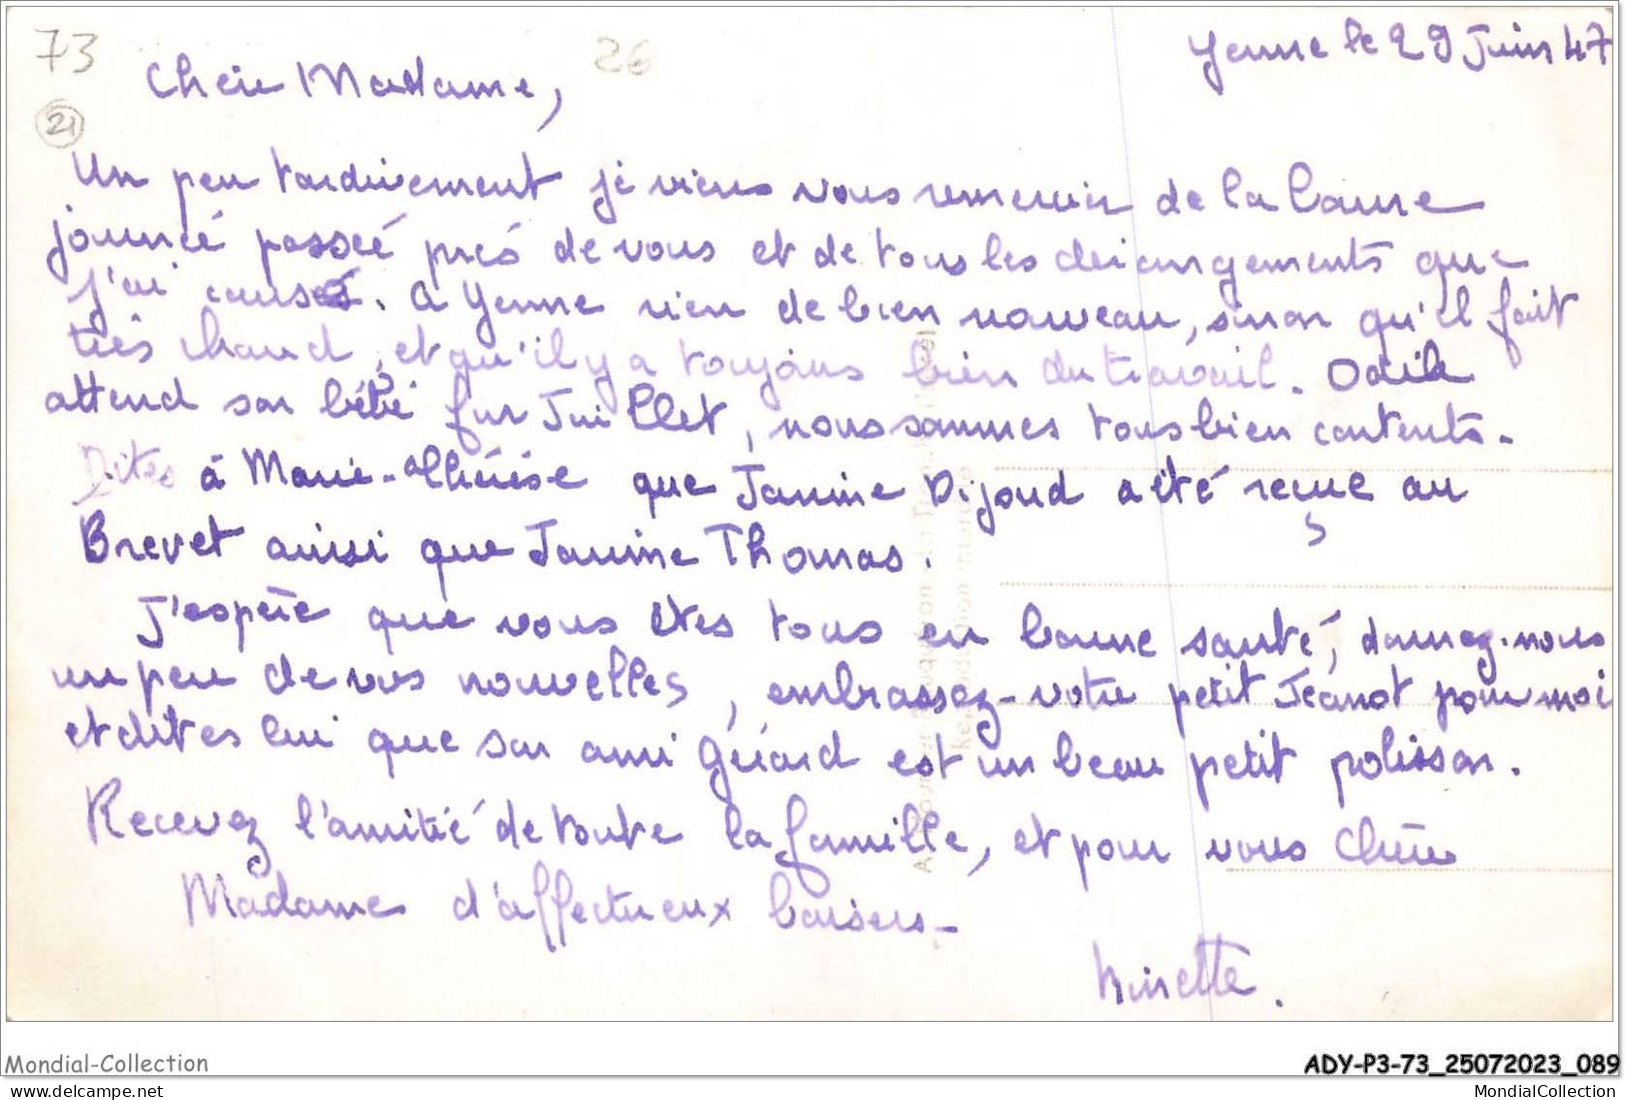 73
26
Yenne le 29 Juin 47
Chère Madame,
21
Un peu tardivement je viens vous remercier de la bonne
journeé passeé près de vous et de tous les derangements que
j'ai causés. A Yenne rien de bien nouveau, sinon qu'il fait
très chaud, et qu'il y a toujours bien du travail. Odile
attend son bébé fin Juillet, nous sommes tous bien contents.
Dites à Marie-Thérèse que Janine Dijoud a été reçue au
Brevet ainsi que Janine Thomas.
J'espère que vous êtes tous en bonne santé, donnez-nous
un peu de vos nouvelles, embrassez-votre petit Jeanot pour moi
et dites lui que son ami Gérard est un beau petit polisson.
Recevez l'amitié de toute la famille, et pour vous Chère
Madame d'affectueux baisers-
Ninette.
Mondial-Collection
ADY-P3-73_25072023_089
www.delcampe.net
MondialCollection